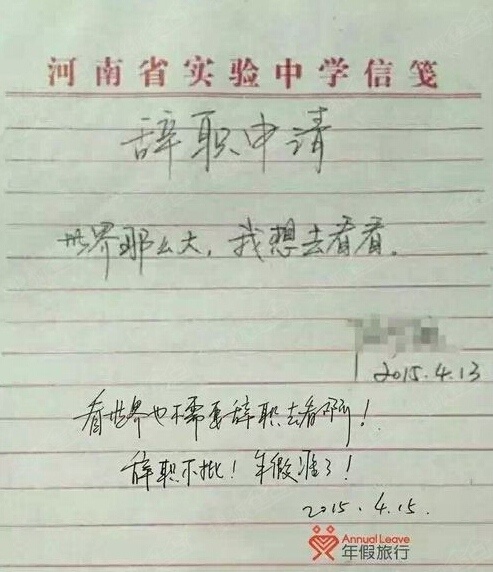 河南省实验中学信笺
辞职申请
世界那么大，我想去看看。
2015.4.13
看世界也不需要辞职去看啊！
辞职不批！年假准了！
2015.4.15.
Annual Leave
年假旅行